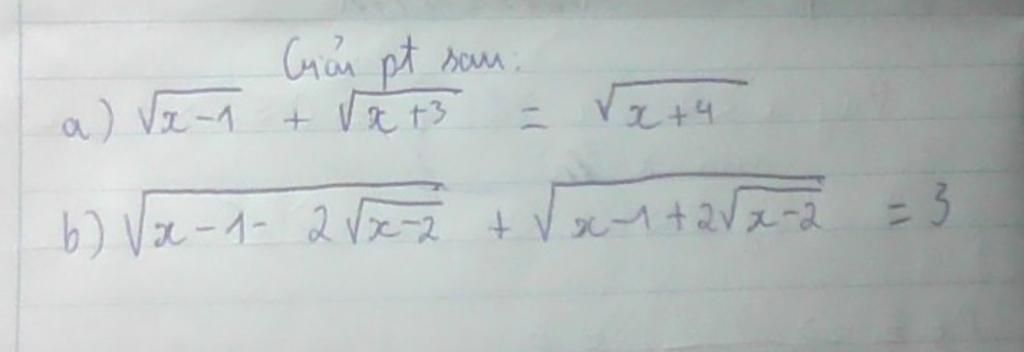 Giải pt sau:
a) √(x-1) + √(x+3) = √(x+4)
b) √(x-1- 2√(x-2)) + √(x-1+2√(x-2)) = 3